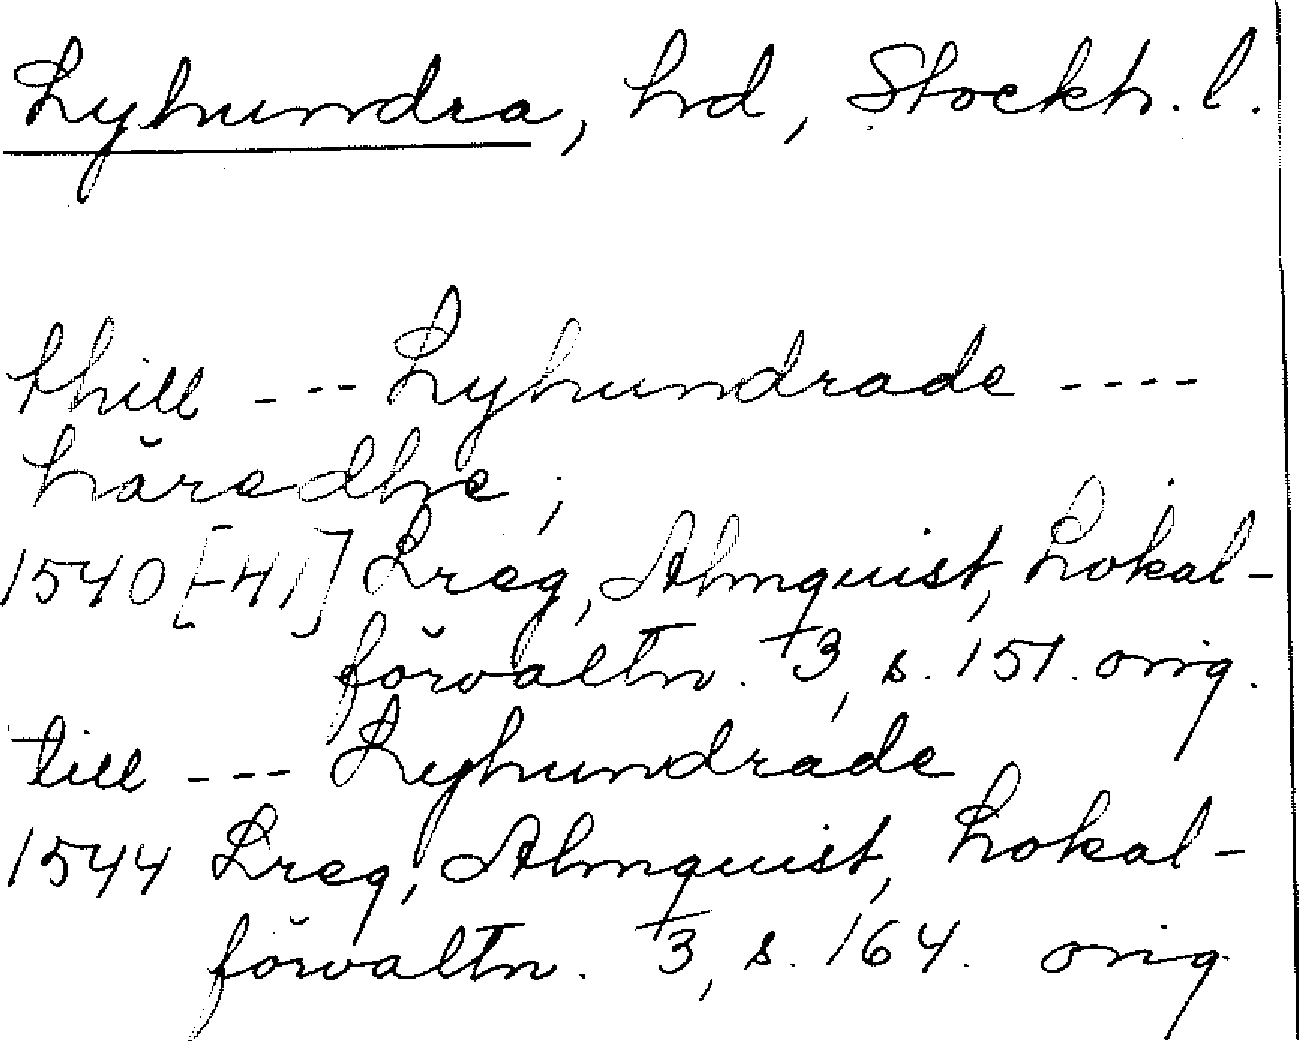 Lyhundra, hd, Stockh. l.
thill --- Lyhundrade ----
häredhe;
1540 [-41] Lreg, Almquist, Lokal-
förvaltn. 3, s. 151. orig.
till --- Lyhundrade
1544 Lreg, Almquist, Lokal-
förvaltn. 3, s. 164. orig